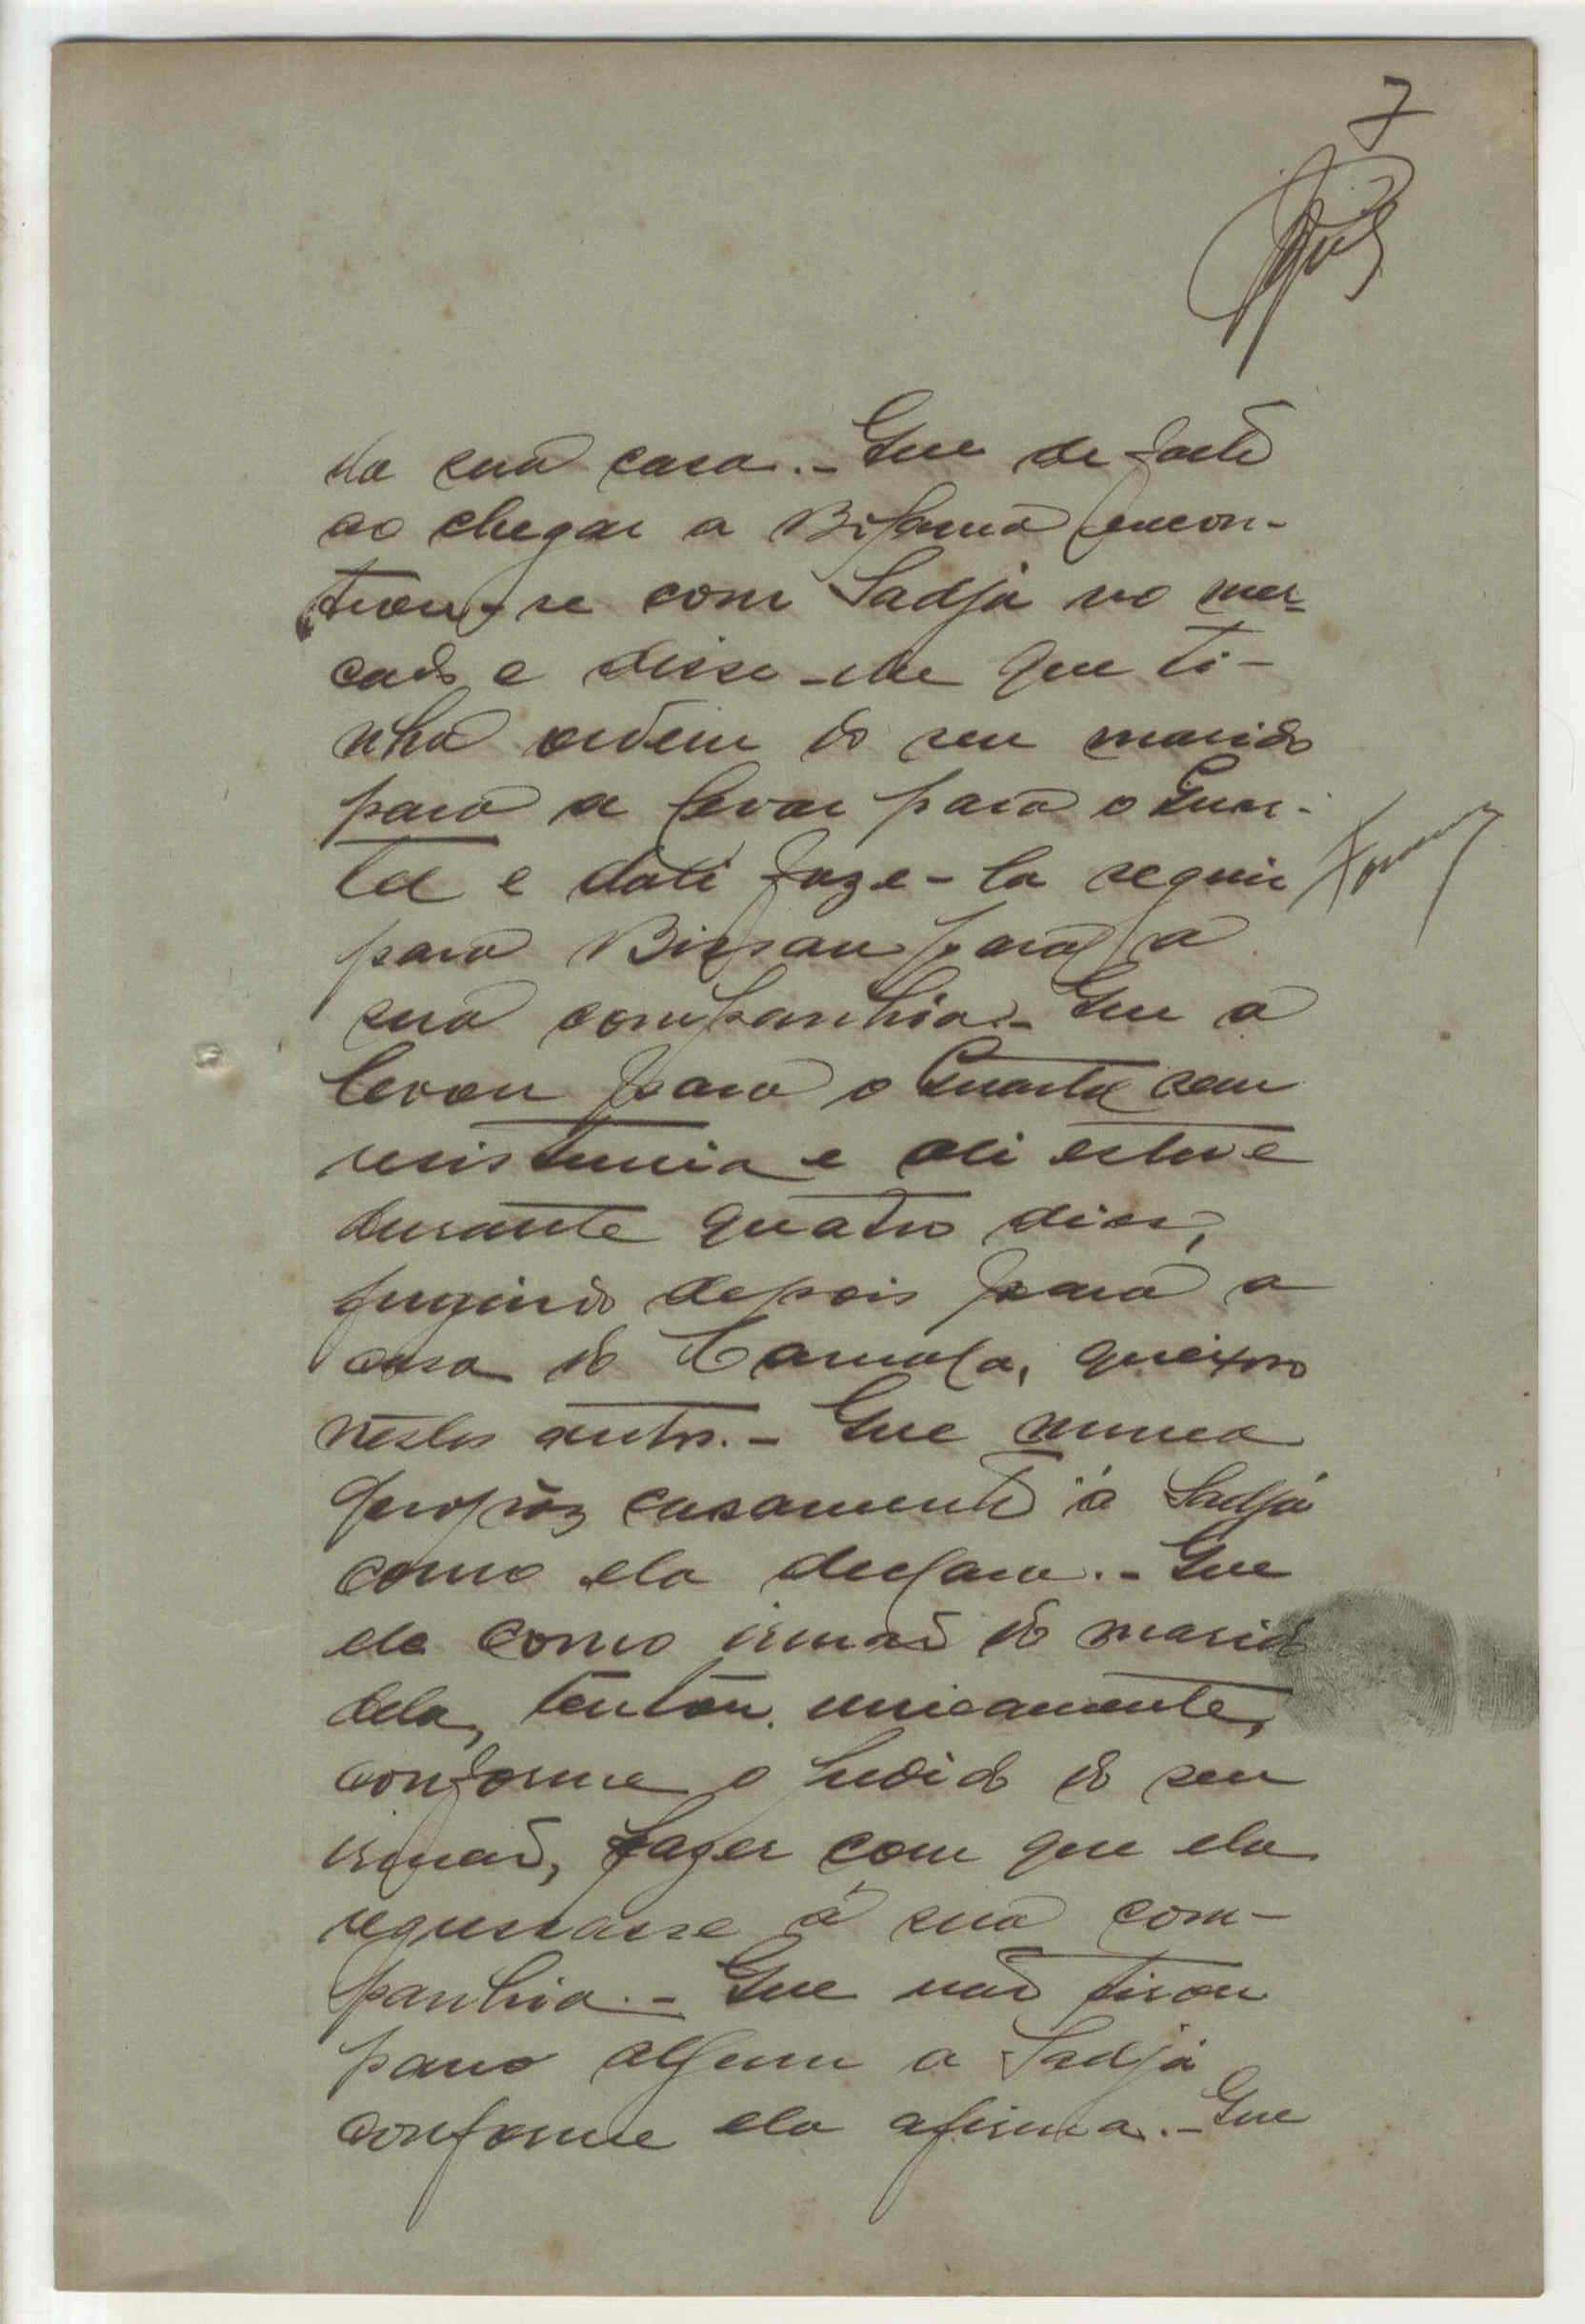 7
da sua casa.- Que de facto
ao chegar a Bafamá encon-
trou-se com Sadjá no mer-
cado e disse-lhe que ti-
nha ordem do seu marido
para a levar para o Quar-
tel e dali faze-la seguir
para Bissau para a
sua companhia.- Que a
levou para o Quartel sem
resistencia e ali esteve
durante quatro dias,
fugindo depois para a
casa do queixoso
nestes autos.- Que nunca
propôz casamento á Sadjá
como ela declara.- Que
ele como irmaõ do marido
dela, tentou unicamente,
conforme o pedido do seu
irmaõ, fazer com que ela
regressasse á sua com-
panhia.- Que naõ tirou
pano algum a Sadjá
conforme ela afirma.- Que